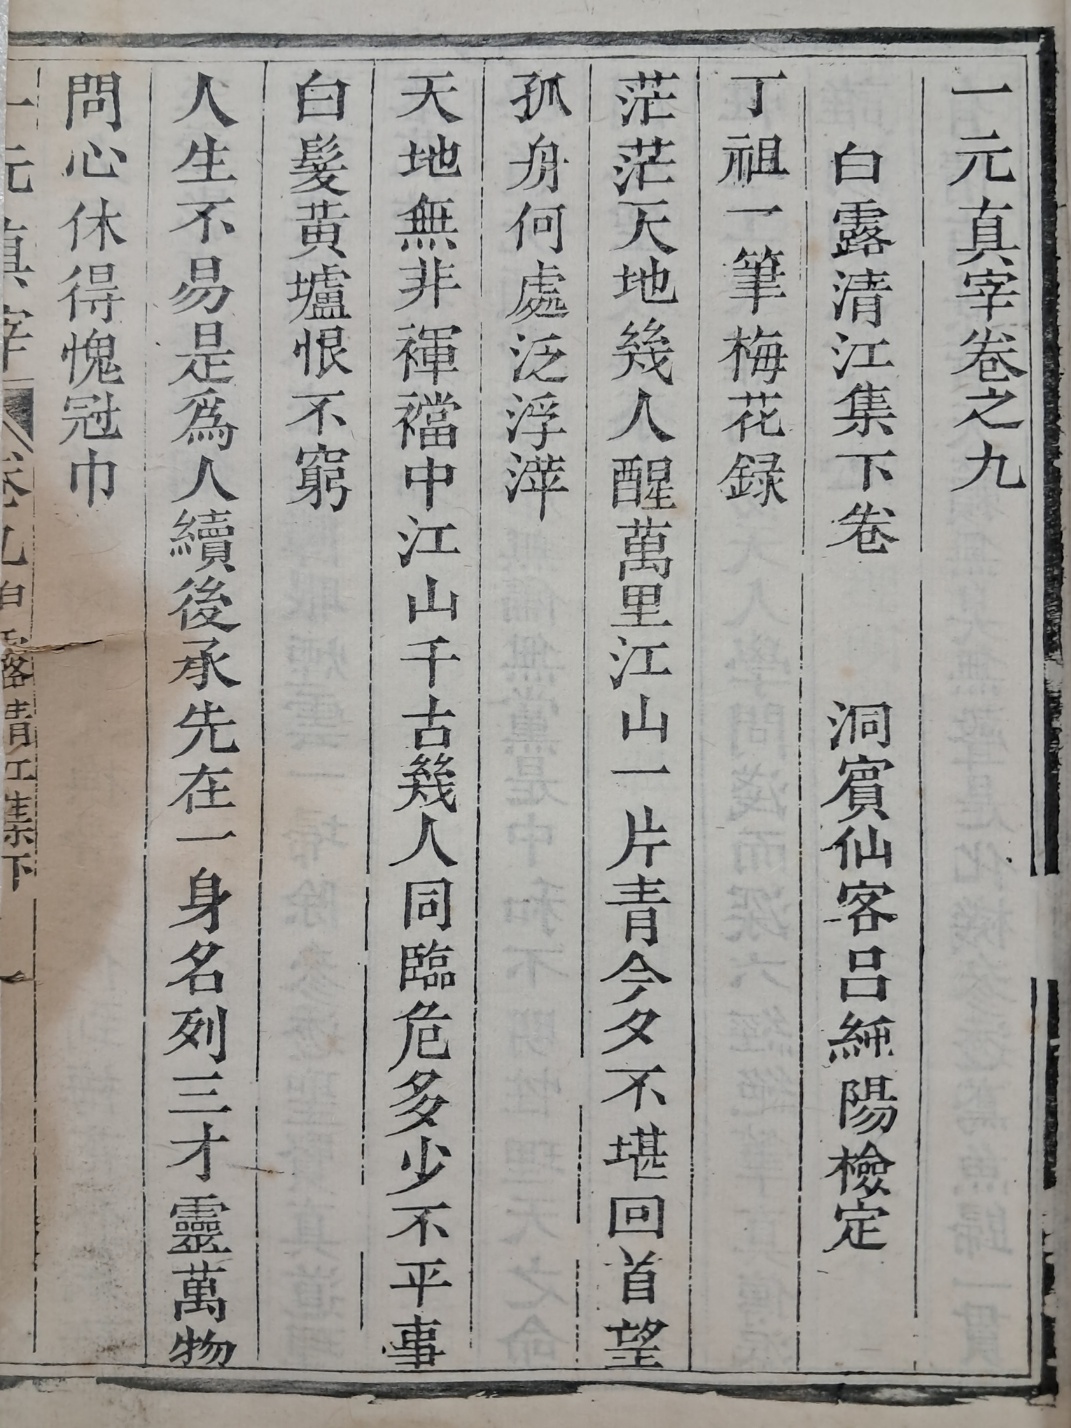 一元真宰卷之九
白露清江集下卷　洞賓仙客呂純陽檢定
丁祖一筆梅花録
茫茫天地幾人醒萬里江山一片青今夕不堪回首望
孤舟何處泛浮萍
天地無非褌襠中江山千古幾人同臨危多少不平事
白髮黃壚恨不窮
人生不易是爲人續後承先在一身名列三才靈萬物
問心休得愧冠巾
一元真宰　卷九　白露清江集下　一